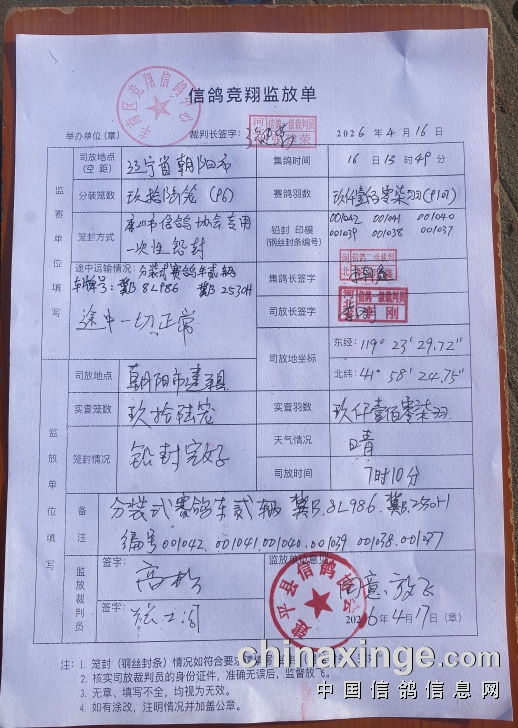 信鸽竞翔监放单
举办单位(章) 裁判长签字: 2026 年 4 月 16 日
司放地点(空 距) 辽宁省朝阳市 集鸽时间 16 日 13 时 49 分
分装笼数 玖拾陆笼 (96) 赛鸽羽数 玖仟壹佰零柒羽(9107)
笼封方式 唐山市信鸽协会专用一次性铅封 铅封 印模(钢丝封条编号) 001042 001041 001040 001039 001038 001037
途中运输情况: 分装式赛鸽车贰辆 车牌号: 冀B 8L986 冀B 2S30H
途中一切正常
集鸽长签字
司放长签字
司放地坐标 东经: 119° 23' 29.72"
北纬: 41° 58' 24.75"
监赛单位填写
司放地点 朝阳市建平县
实查笼数 玖拾陆笼 实查羽数 玖仟壹佰零柒羽
笼封情况 铅封完好 天气情况 晴
司放时间 7时10分
备注 分装式赛鸽车贰辆 冀B.8L986. 冀B.2S30H
编号001042. 001041.001040.001039 001038.001037
监放单位填写
监放裁判员 签字: 监放单位意见
签字: 同意放飞
2026年4月17日 (章)
建平县信鸽协会
注: 1. 笼封 (钢丝封条) 情况如符合要求
2. 核实司放裁判员的身份证件，准确无误后，监督放飞。
3. 无章、填写不全，均视为无效。
4. 如有涂改，注明情况并加盖公章。
chinaxinge.com
中国信鸽信息网